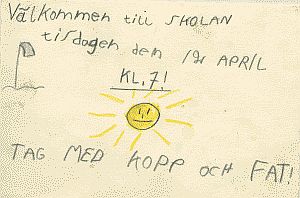 Välkommen till SKOLAN
tisdagen den 19 APRIL
KL, 7!
TAG MED KOPP och FAT!